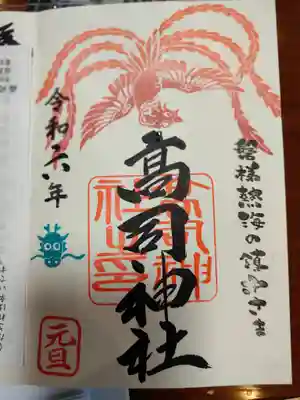 磐梯熱海の鎮守さま
髙司神社
令和六年
元旦